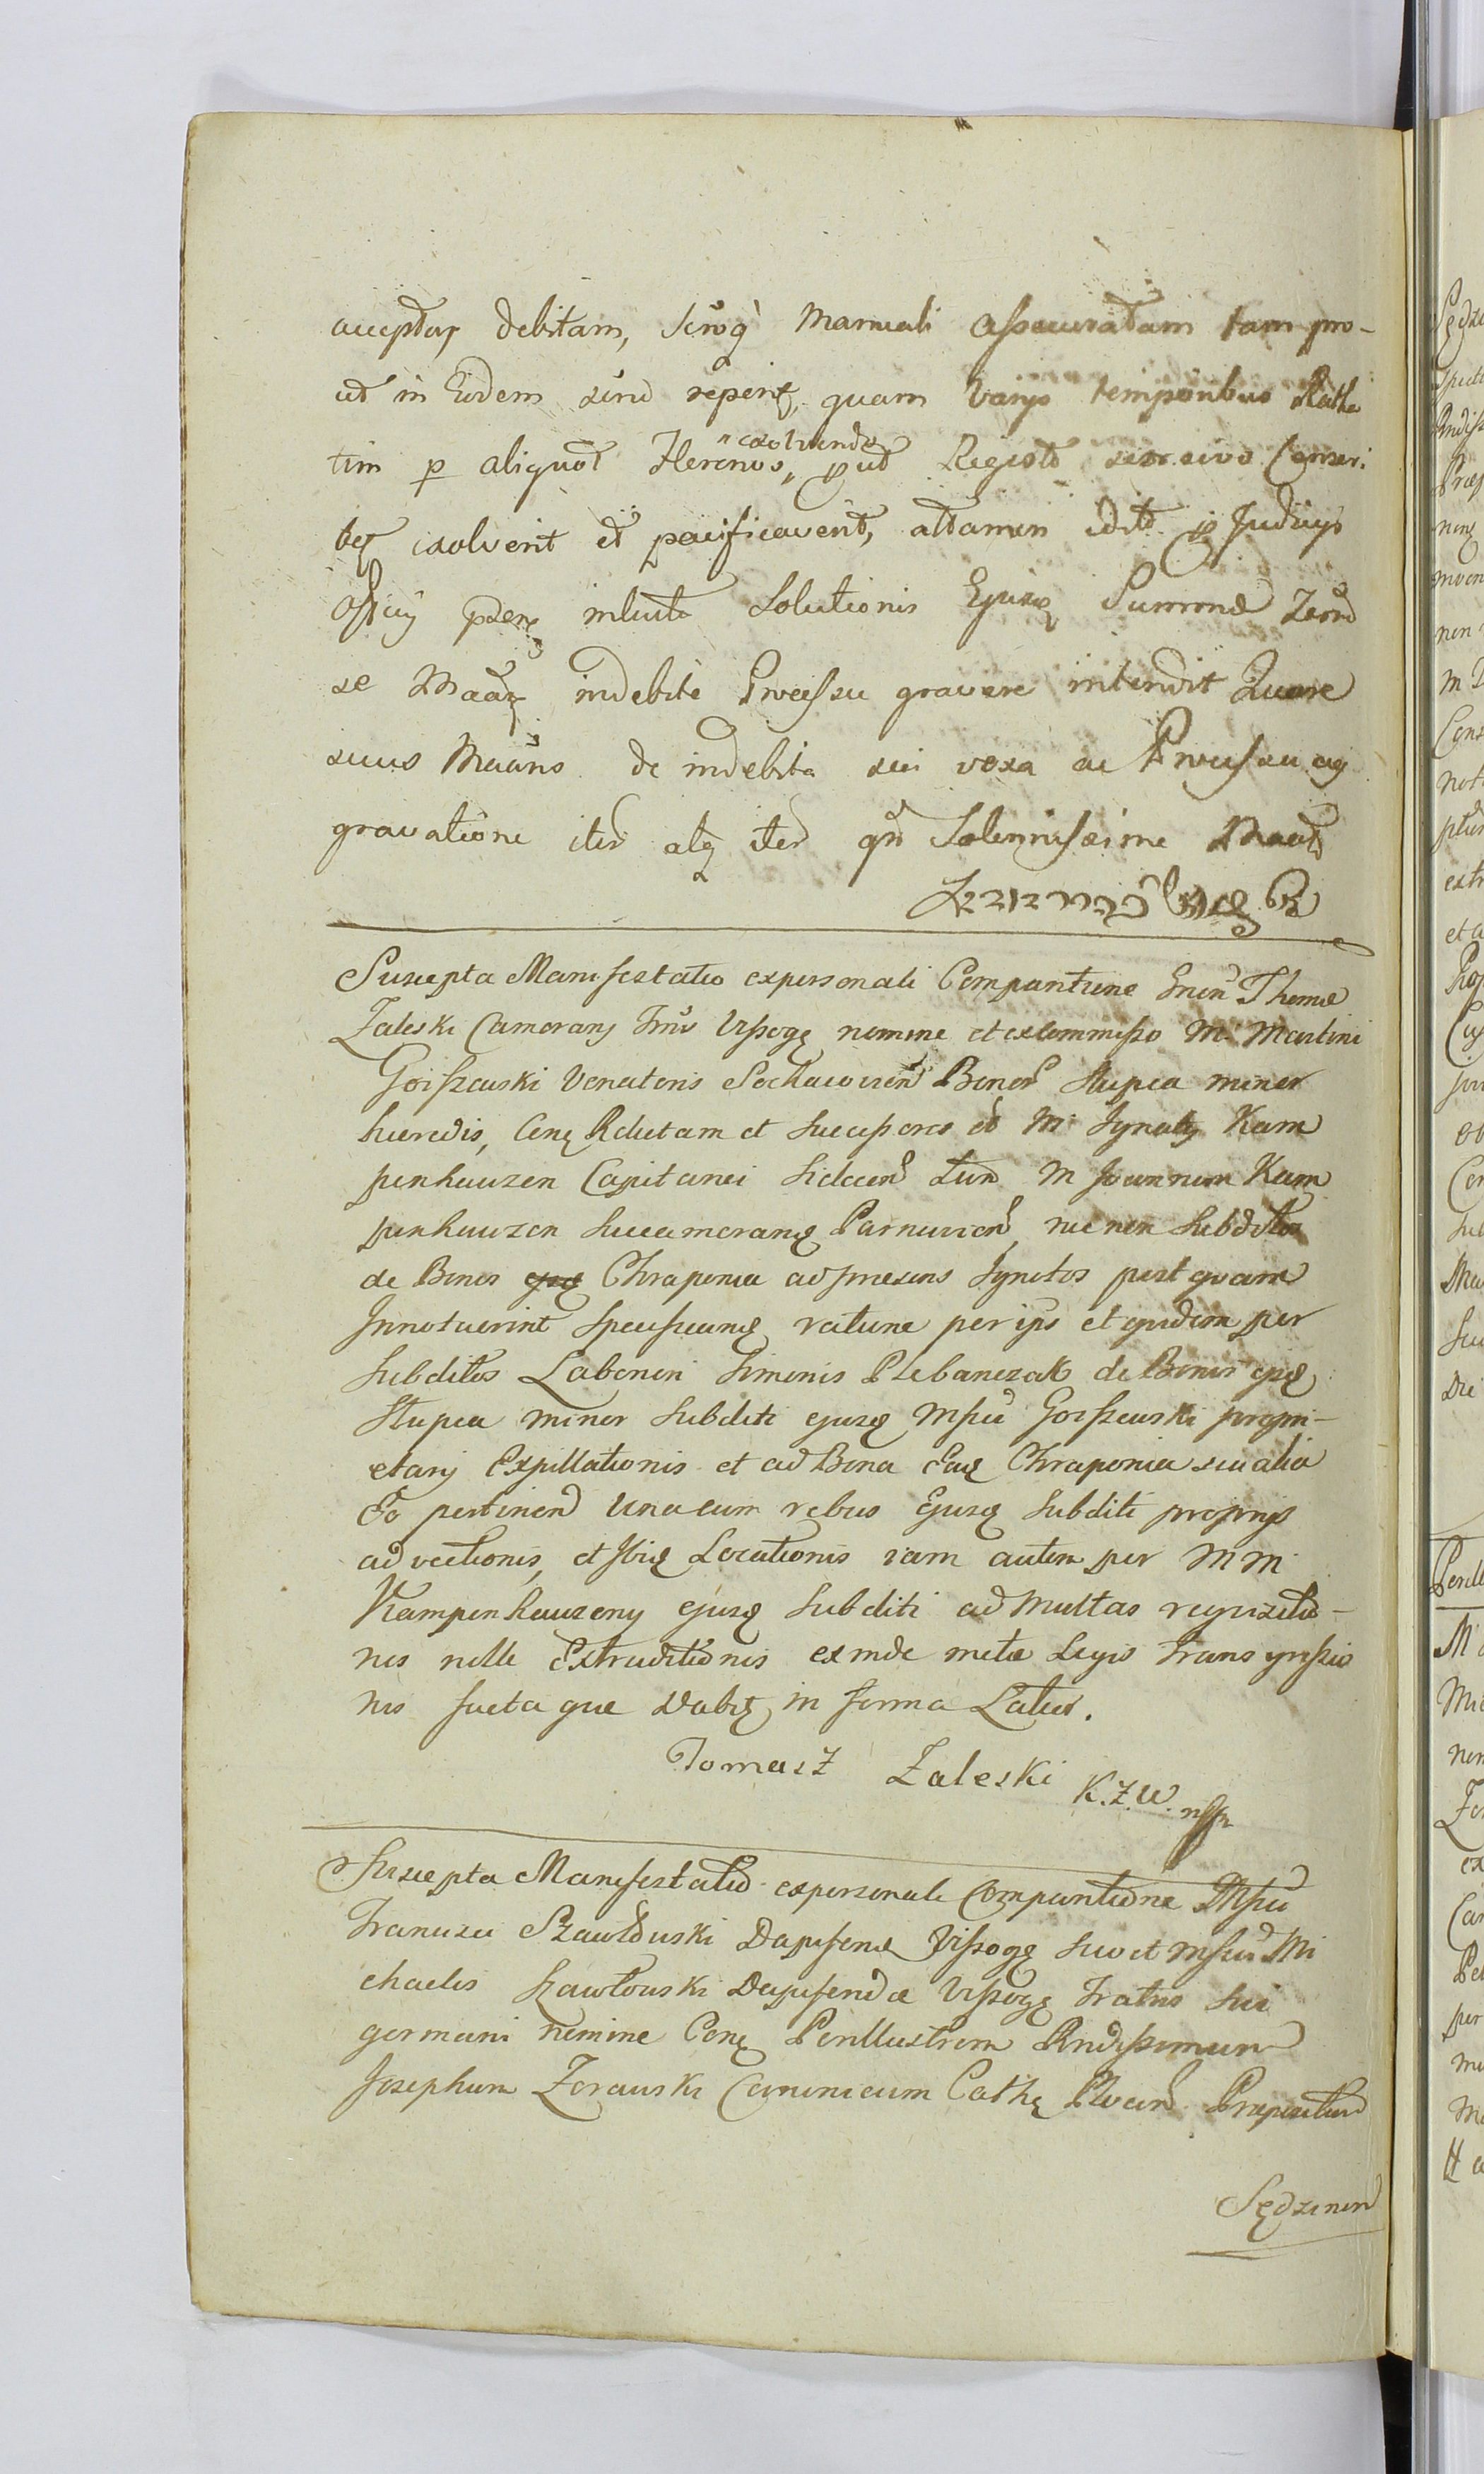 acceptor debitam, scroq manuali assecuratam tam pro-
ut in Eodem sund reperit, quam Varijs temporibus Ratha
tim p aliquot Terenos, put Registd
exolvendo
exolverit et pacificaverit, attamen idtd p Judicys
Officy pden intuitu Solutionis Ejusq Summæ
se Maa indebite Processu gravare intendit Quare
suus Maans de indebita sui vexa ac Processu
gravatione iterd atq iterd qn Solennissime Maatd
Suscepta Manifestatio expersonali Comparitione Gnen Thomæ
Zaleski Camerarij Trris Vissogę nomine et excommisso M. Martini
Goiszewski Venatoris Sochaczoviend Bonor Słupia minor
hæredis, Conę Rdutam et Successores et M Ignatij Kam
penhauzen Capitanei tund M Joannem Kam
penhauzen Succameranę Parnavien nec non Subditos
de Bonis Chraponia ad præsens Ignotos post quam
Innotuerint Specificanę ratione per ipsos et quidem per
Subditos Laboriosi Simonis Plebanczak de Bonis ejsdę
Słupia minor Subditi ejusę Mfici Goiszewski propri-
etarij Expillationis et ad Bona Eaę Chraponia seu alia
Eo pertinend una cum rebus Ejusę Subditi proprijs
advectionis, et Ibię Locationis iam autem per MM
Kampenhauzeny ejusę Subditi ad multas requisitio-
nes nolle Extraditionis exinde metæ Legis transgressio
nis facta que dabit in forma Latior.
Tomasz Zaleski K.Z.W. mpp
Suscepta Manifestatio expersonali Comparitione Mfici
Francisci Szawłowski Dapiferi Vissogę suo et Mfici Mi
chaelis Szawłowski Dapiferidæ Vissogę Fratris sui
germani nomine Conę Perillustrem Rndissimum
Josephum Zorawski Canonicum Cathę Præpositum
Sędzinen